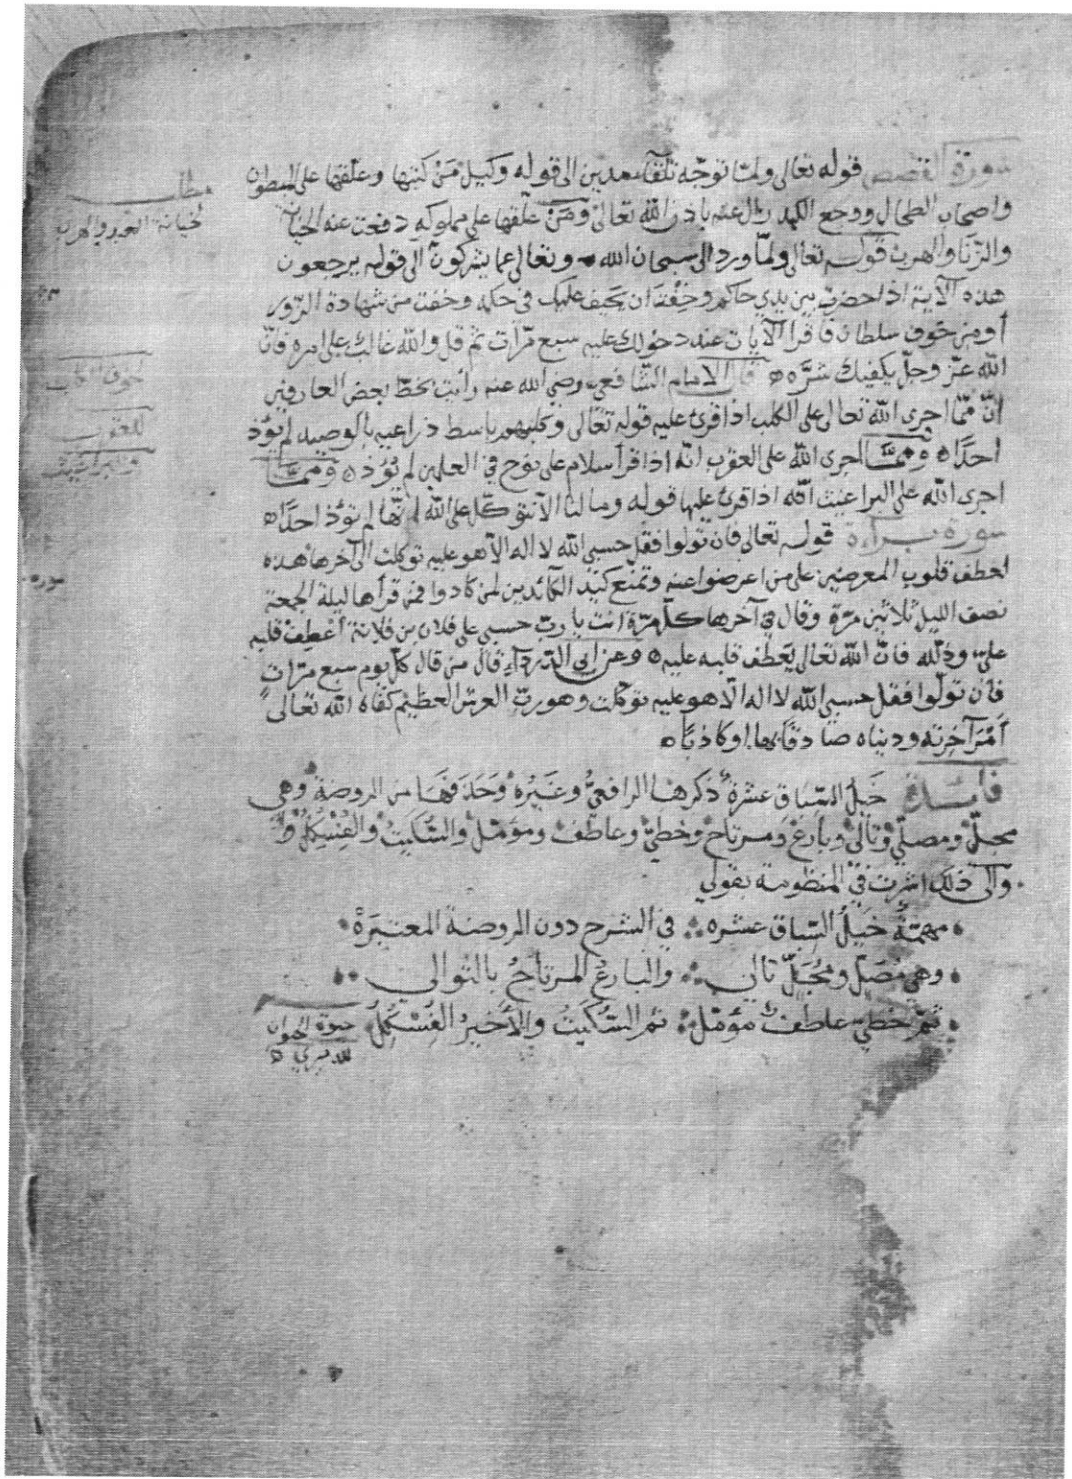 سورة القصص قوله تعالى ولمّا توجّه تلقآء مدين الى قوله وكيل مَنْ كتبها وعلّقها على المبطون
واصحاب الطحال ووجع الكبد زال عنه باذن الله تعالى ومَنْ علّقها على مملوكه دفعت عنه الخيانة
والزّنَا والهرب قوله تعالى ولمّا ورد الى سبحان الله وتعالى عما يشركون الى قوله يرجعون
هذه الآية اذا حضرت بين يدي حاكم وخِفْتَ ان يحيف عليك في حكمه وخفت من شهادة الزّور
أو من خوف سلطان فاقرأ الآيات عند دخولك عليه سبع مرّات ثم قل والله غالبٌ على امره فانّ
الله عزّ وجلّ يكفيك شرَّه ه قال الامام الشّافعي رضي الله عنه رأيت بخطّ بعض العارفين
انّ ممّا اجرى الله تعالى على الكلب اذا قرئ عليه قوله تعالى وكلبهم باسط ذراعيه بالوصيد لم يؤذ
أحدًا ه وممّا اجرى الله على العقرب انّه اذا قرأ سلام على نوح في العلمين لم تؤذ ه وممّا
اجرى الله على البراغيث انّه اذا قرئ عليها قوله وما لنا الّا نتوكّل على الله انّها لم تؤذ احدًا ه
سورة براءة قوله تعالى فان تولوا فقل حسبي الله لا اله الّا هو عليه توكلت الى آخرها هذه
لعطف قلوب المعرضين على من اعرضوا عنه وتمنع كيْد الكآئدين لمن كادوا فمن قرأها ليلة الجمعة
نصف الليل ثلاثين مرّة وقال في آخرها كلّ مرّة انت يا ربّ حسبي على فلان بن فلانة أعْطِفْ قلبه
عليّ وذلّله فانّ الله تعالى يعطف قلبه عليه ه وعن ابي الدّرداء قال من قال كلّ يوم سبع مرّاتٍ
فان تولّوا فقل حسبي الله لا اله الّا هو عليه توكّلت وهو ربّ العرش العظيم كفاه الله تعالى
أمْرَ آخرته ودنياه صادقًا بها او كاذبًا ه
فآئدة خَيلُ السّباق عشرةٌ ذكرها الرافعيُّ وغَيْرُهْ وَحَذَفهَا من الروضة وهي
مجلّ ومصلّي وتالى وبارع ومرتاح وخطيّ وعاطف ومؤمّل والسّكيت والفِسْكِلُ
والى ذلك اشرت في المنظومة بقولي
مهمّةٌ خَيلُ السّباق عشره في الشرح دون الروضة المعتبَرَهْ
وهي مُصَلٍّ ومُجَلٍّ تالي والبارعُ المرتاحُ بالتوالي
ثمّ خطيّ عاطف مؤمّل ثم السُّكَيْتُ والأخيرُ الفِسْكِلُ
حيوة الحيوان
للدميري ه
مطلب
لخيانة العبد والهرب
خوف الكلب
للعقرب